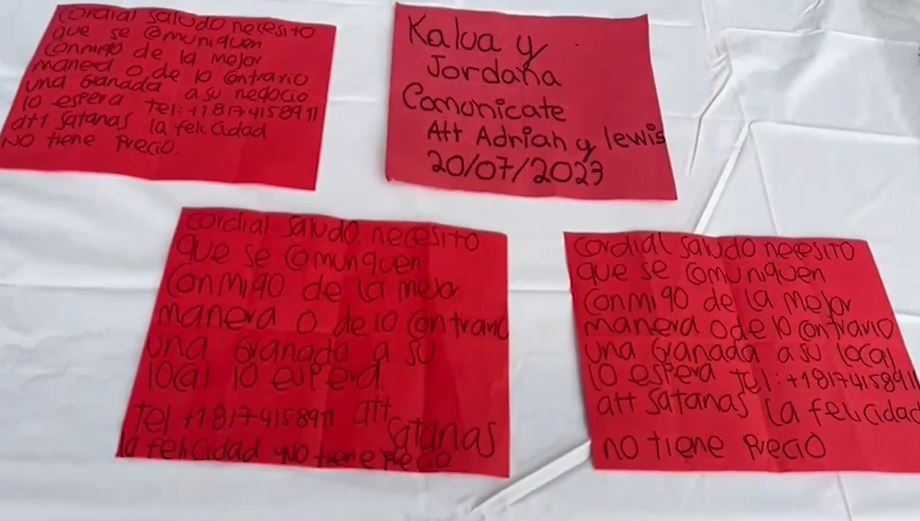 cordial saludo necesito
que se comuniquen
conmigo de la mejor
manera o de lo contrario
una Granada a su negocio
lo espera Tel: +18174158911
att Satanas la felicidad
NO tiene Precio.
Kalua y
Jordana
Comunicate
Att Adrian y lewis
20/07/2023
cordial saludo, necesito
que se comunquen
conmigo de la mejor
manera o de lo contrario
una Granada a su
local lo espera
Tel: +18174158911 att
Satanas
la felicidad no tiene Precio
cordial saludo necesito
que se comuniquen
conmigo de la mejor
manera o de lo contrario
una Granada a su local
lo espera Tel: +18174158911
att Satanas la felicidad
no tiene Precio